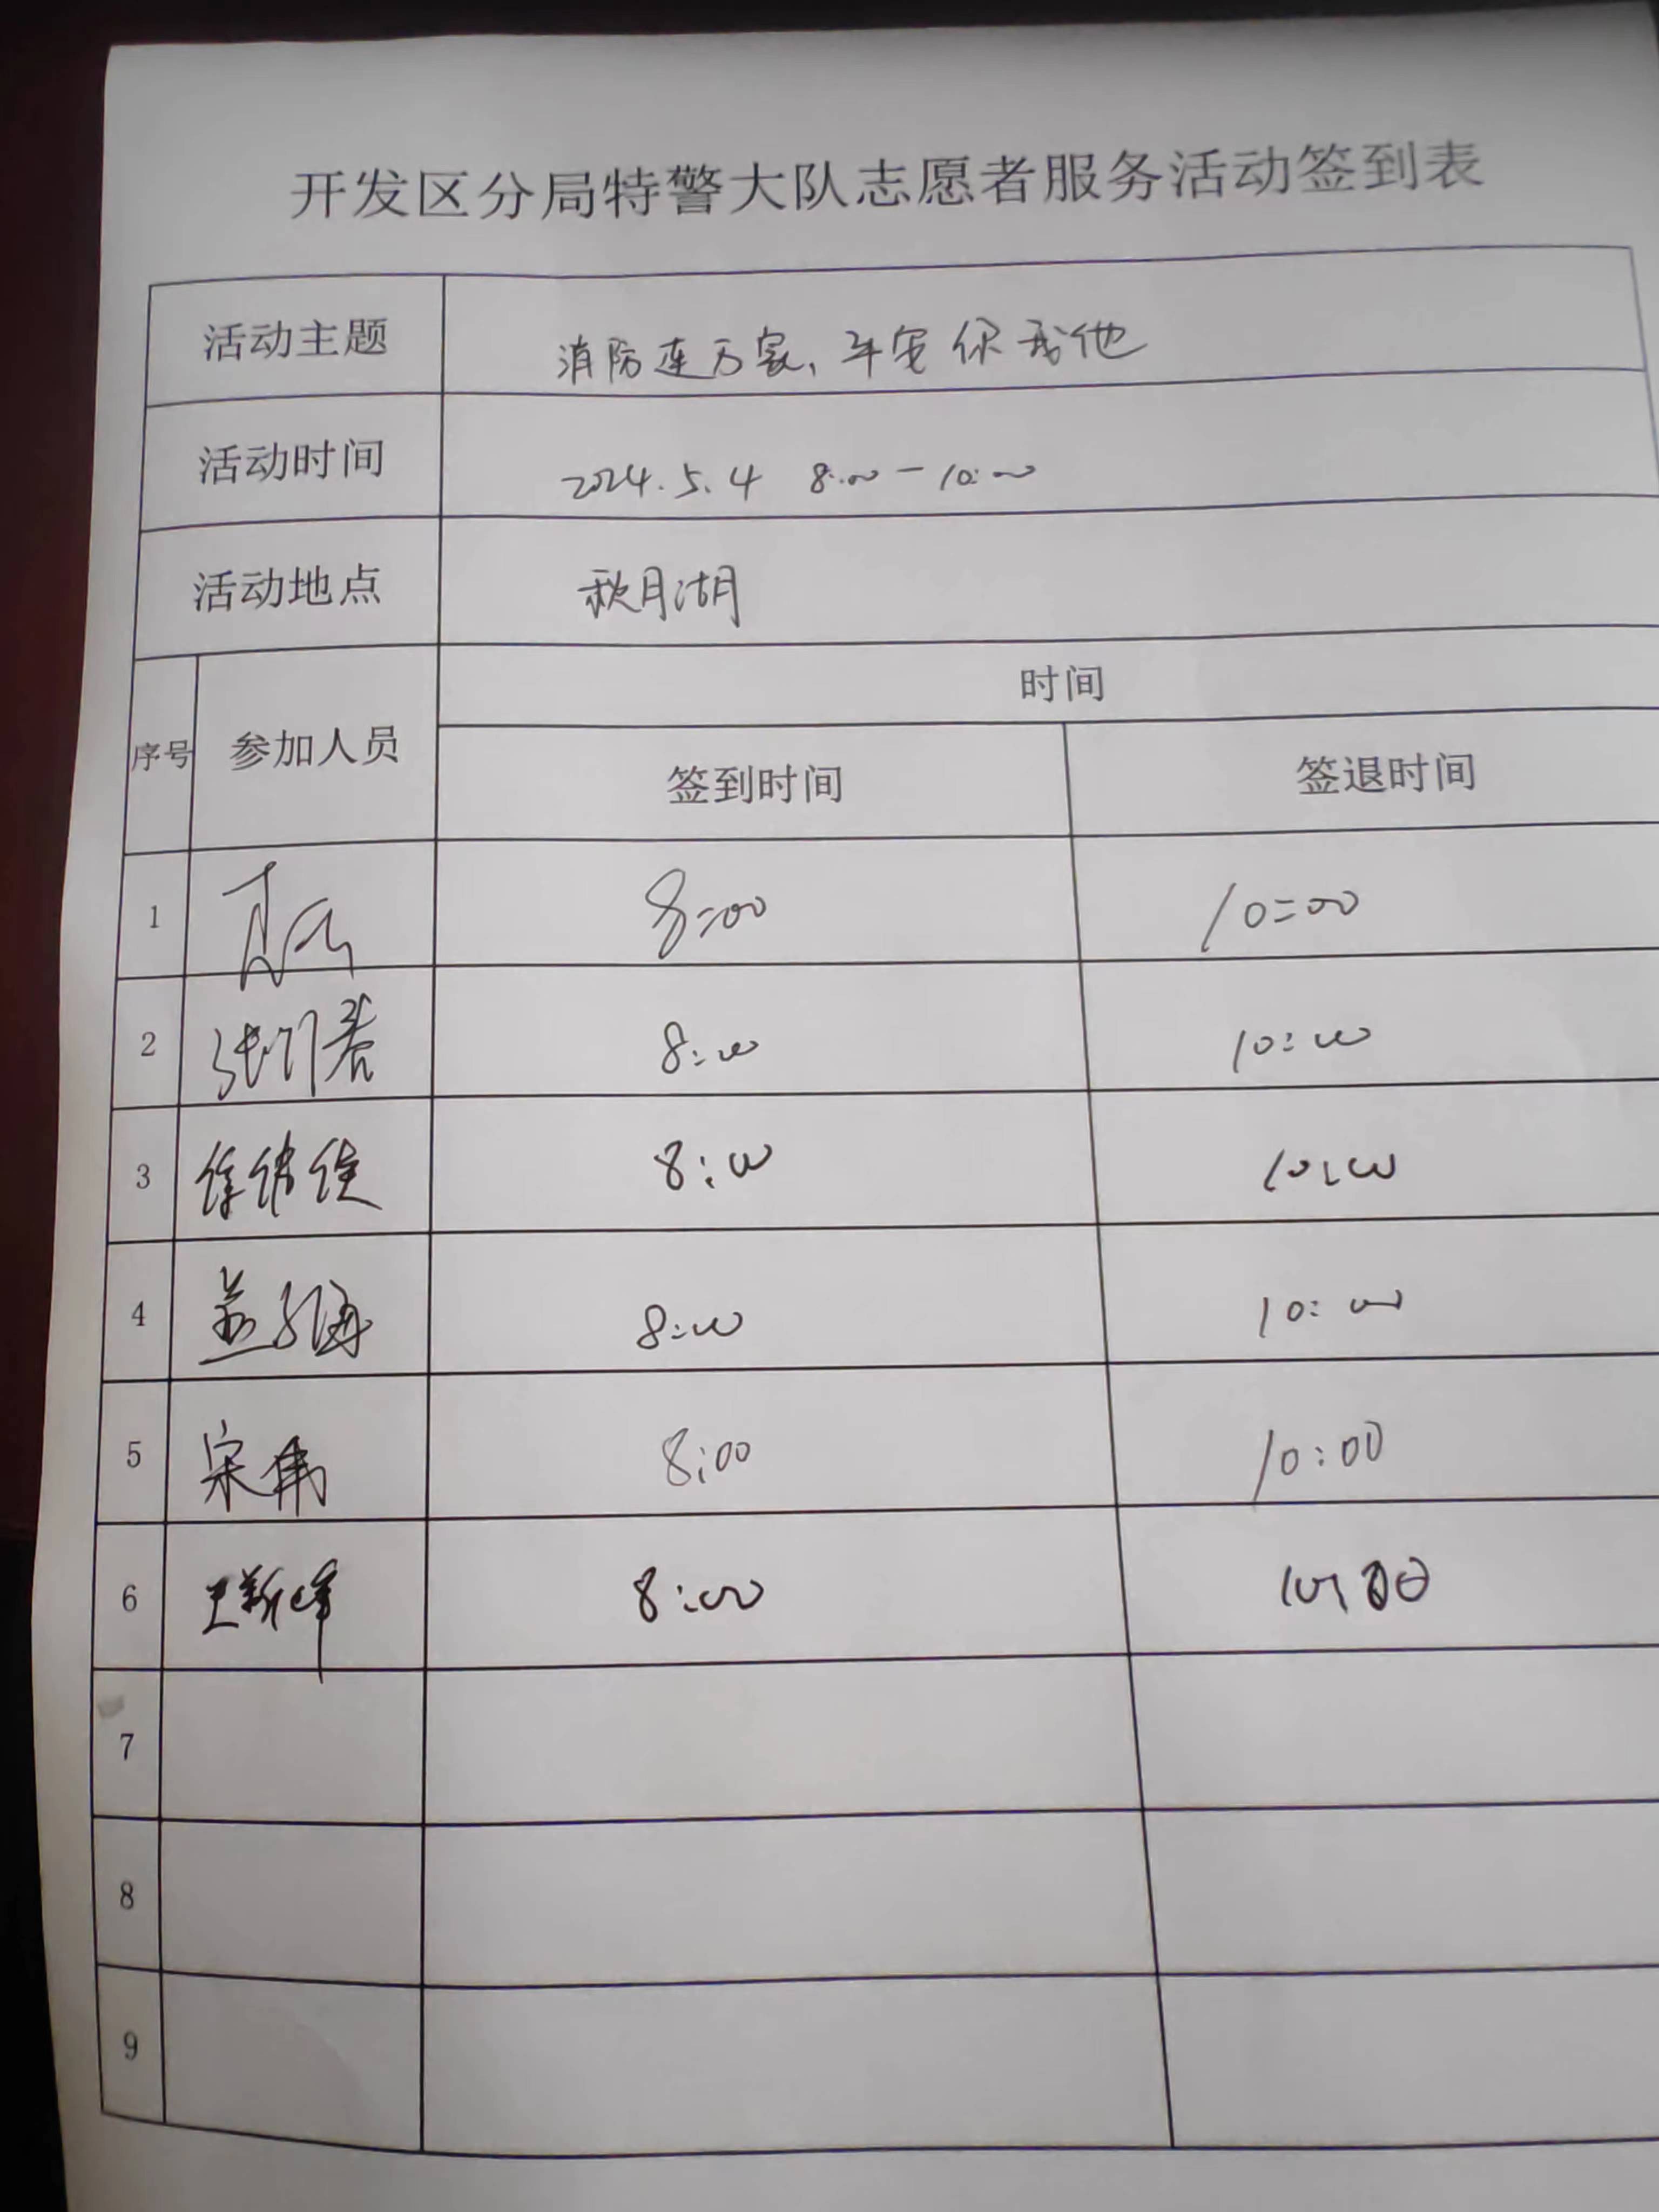 开发区分局特警大队志愿者服务活动签到表
活动主题 消防连万家，平安你我他
活动时间 2024.5.4 8:00-10:00
活动地点 秋月湖
序号 参加人员 时间
签到时间 签退时间
1 8:00 10:00
2 8:00 10:00
3 8:00 10:00
4 8:00 10:00
5 宋伟 8:00 10:00
6 8:00 10:00
7
8
9